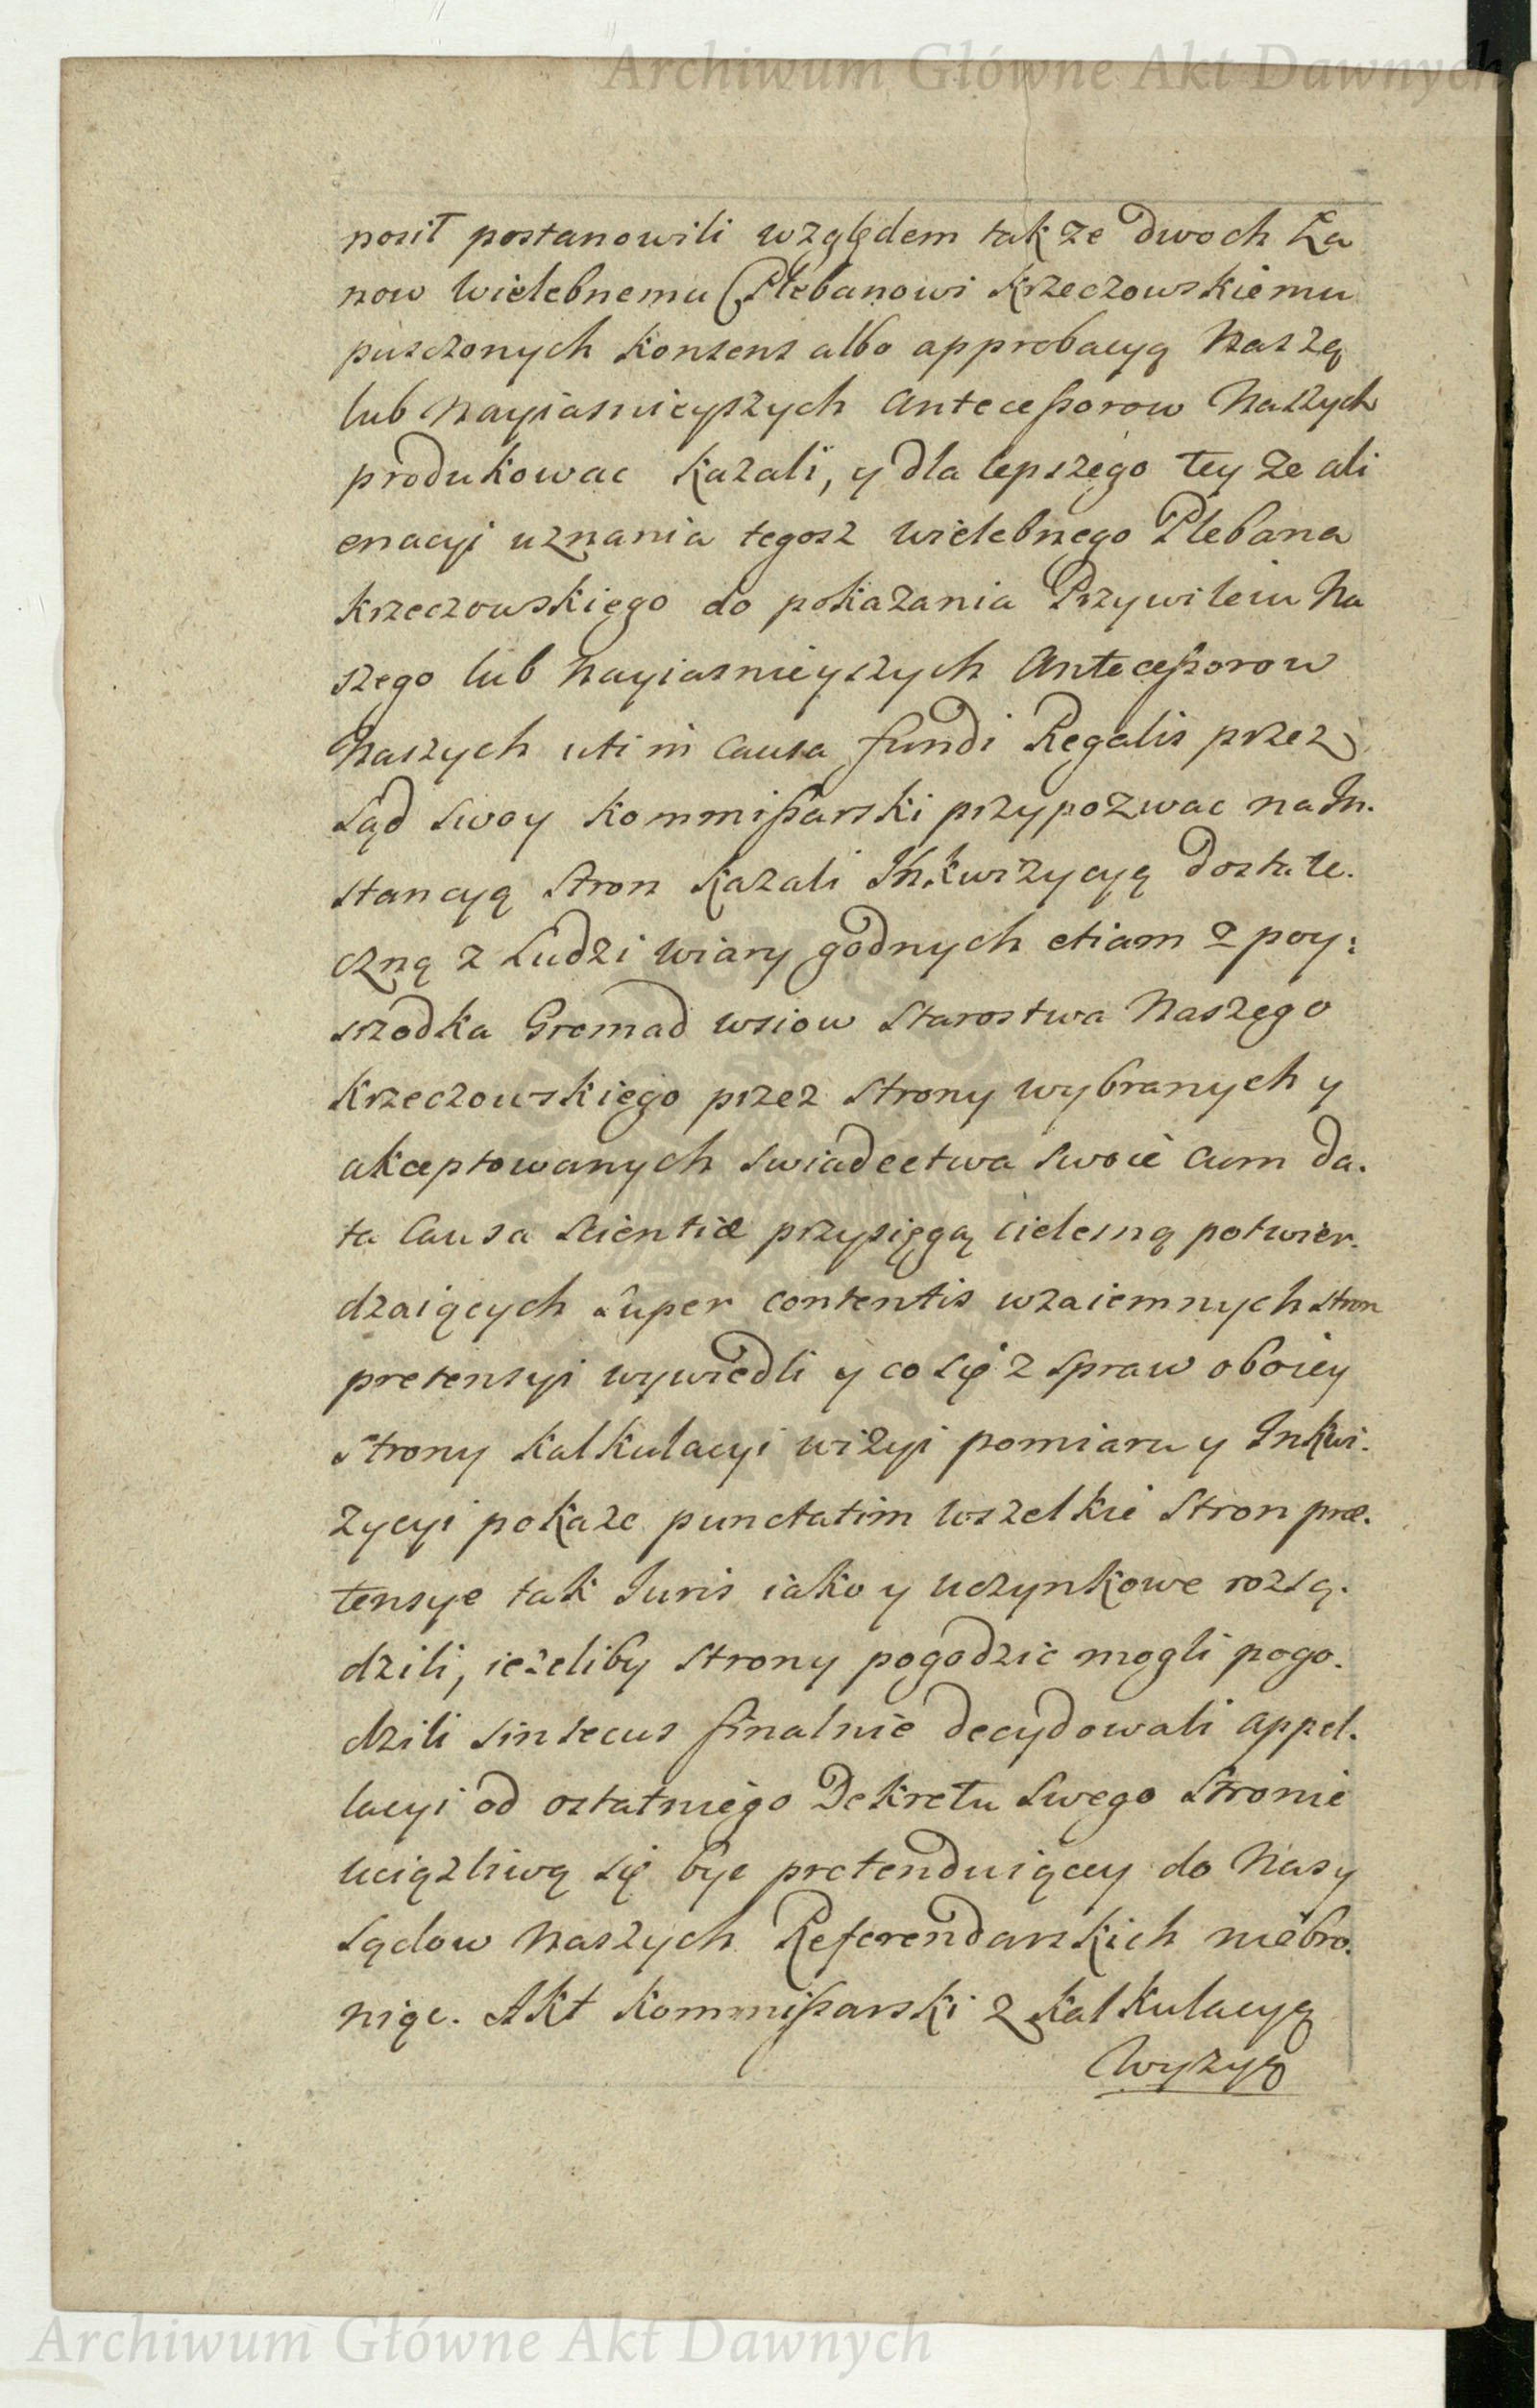 Archiwum Główne Akt Dawnych
nosił postanowili względem tak ze dwoch Ła
now wielebnemu Plebanowi Krzeczowskiemu
pusczonych konsens albo approbacyą Naszą
lub Nayiasnieyszych Antecessorow Naszych
produkowac kazali, y dla lepszego tey ze ali
enacyi uznania tegosz wielebnego Plebana
krzeczowskiego do pokazania Przywileiu Na
szego lub Nayiasnieyszych Antecessorow
Naszych uti in causa fundi Regalis przez
Sąd swoy kommissarski przypozwac na In.
stancyą stron kazali Inkwizycyą dostate.
czną z Ludzi wiary godnych etiam z poy:
srzodka Gromad wsiow Starostwa Naszego
krzeczowskiego przez strony wybranych y
akceptowanych swiadectwa swoie cum da.
ta causa scientiæ przysięgą cielesną potwier.
dzaiących super contentis wzaiemnych stron
pretensyi wywiedli y co się z spraw oboiey
strony kalkulacyi wizyi pomiaru y Inkwi.
zycyi pokaze punctatim wszelkie stron præ.
tensye tak Juris iako y uczynkowe rozsą.
dzili, iezeliby strony pogodzic mogli pogo.
dzili sin secus finalnie decydowali appel.
lacyi od ostatniego Dekretu swego stronie
uciązliwą się byc pretenduiącey do Nas y
sądow Naszych Referendarskich niebro.
niąc. Akt kommissarski z kalkulacyą
wyzyą
Archiwum Główne Akt Dawnych